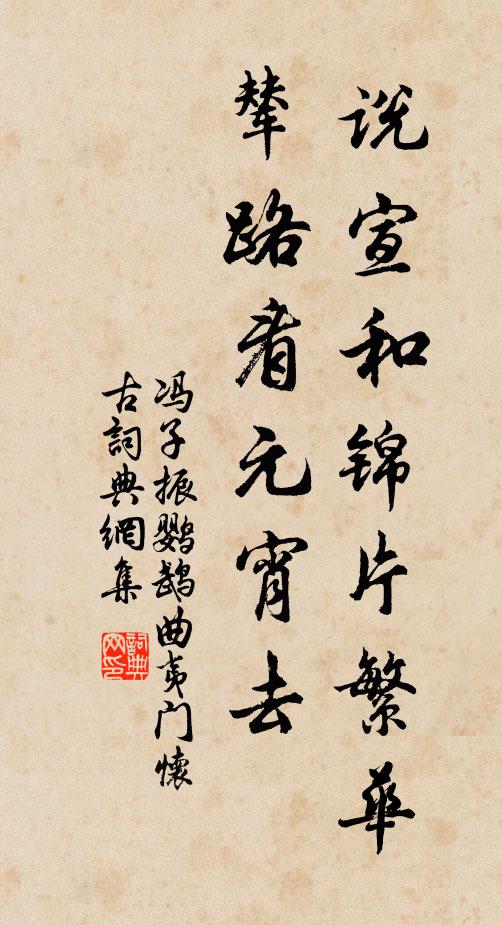 说宣和锦片繁華
辇路看元宵去
冯子振鹦鹉曲夷门懷
古詞典網集
詞典网印